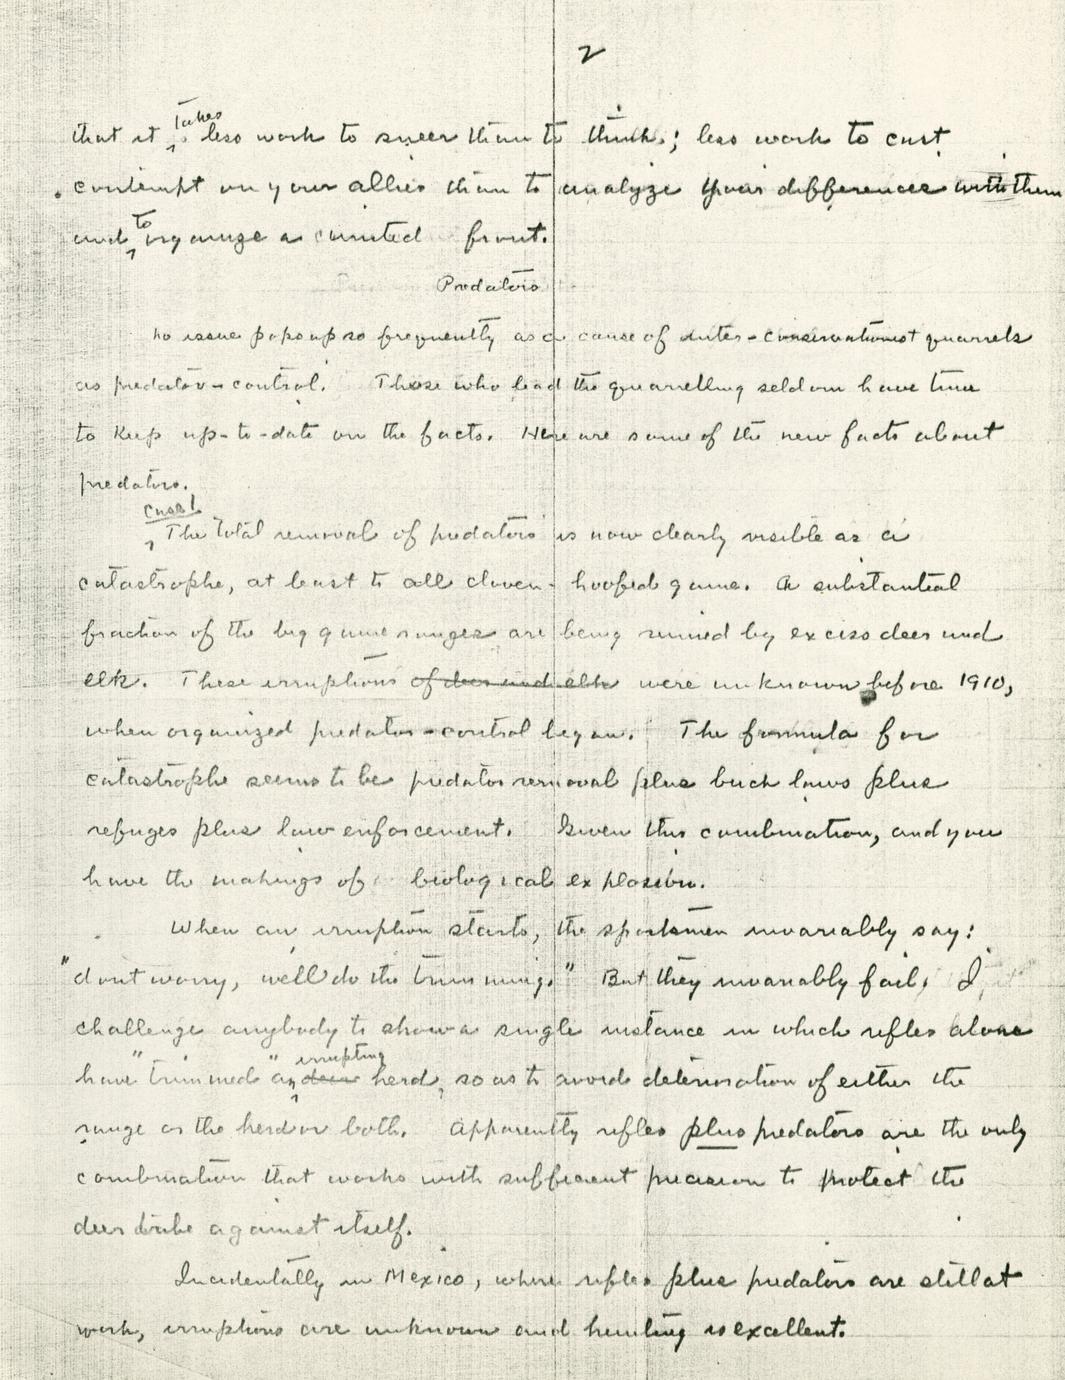 2
that it takes less work to sneer than to think; less work to cast
contempt on your allies than to analyze your differences with them
and to organize a united front.
Predators
No issue pops up so frequently as a cause of inter-conservationist quarrels
as predator-control. Those who lead the quarrelling seldom have time
to keep up-to-date on the facts. Here are some of the new facts about
predators.
The total removal of predators is now clearly visible as a
catastrophe, at least to all cloven-hoofed game. A substantial
fraction of the big game ranges are being ruined by excess deer and
elk. These irruptions of deer and elk were unknown before 1910,
when organized predator-control began. The formula for
catastrophe seems to be predator removal plus buck laws plus
refuges plus law enforcement. Given this combination, and you
have the makings of biological explosion.
When an irruption starts, the sportsmen invariably say:
"dont worry, we'll do the trimming." But they invariably fail. I
challenge anybody to show a single instance in which rifles alone
have "trimmed" an irrupting deer herd, so as to avoid deterioration of either the
range or the herd or both. Apparently rifles plus predators are the only
combination that works with sufficient precision to protect the
deer tribe against itself.
Incidentally in Mexico, where rifles plus predators are still at
work, irruptions are unknown and hunting is excellent.